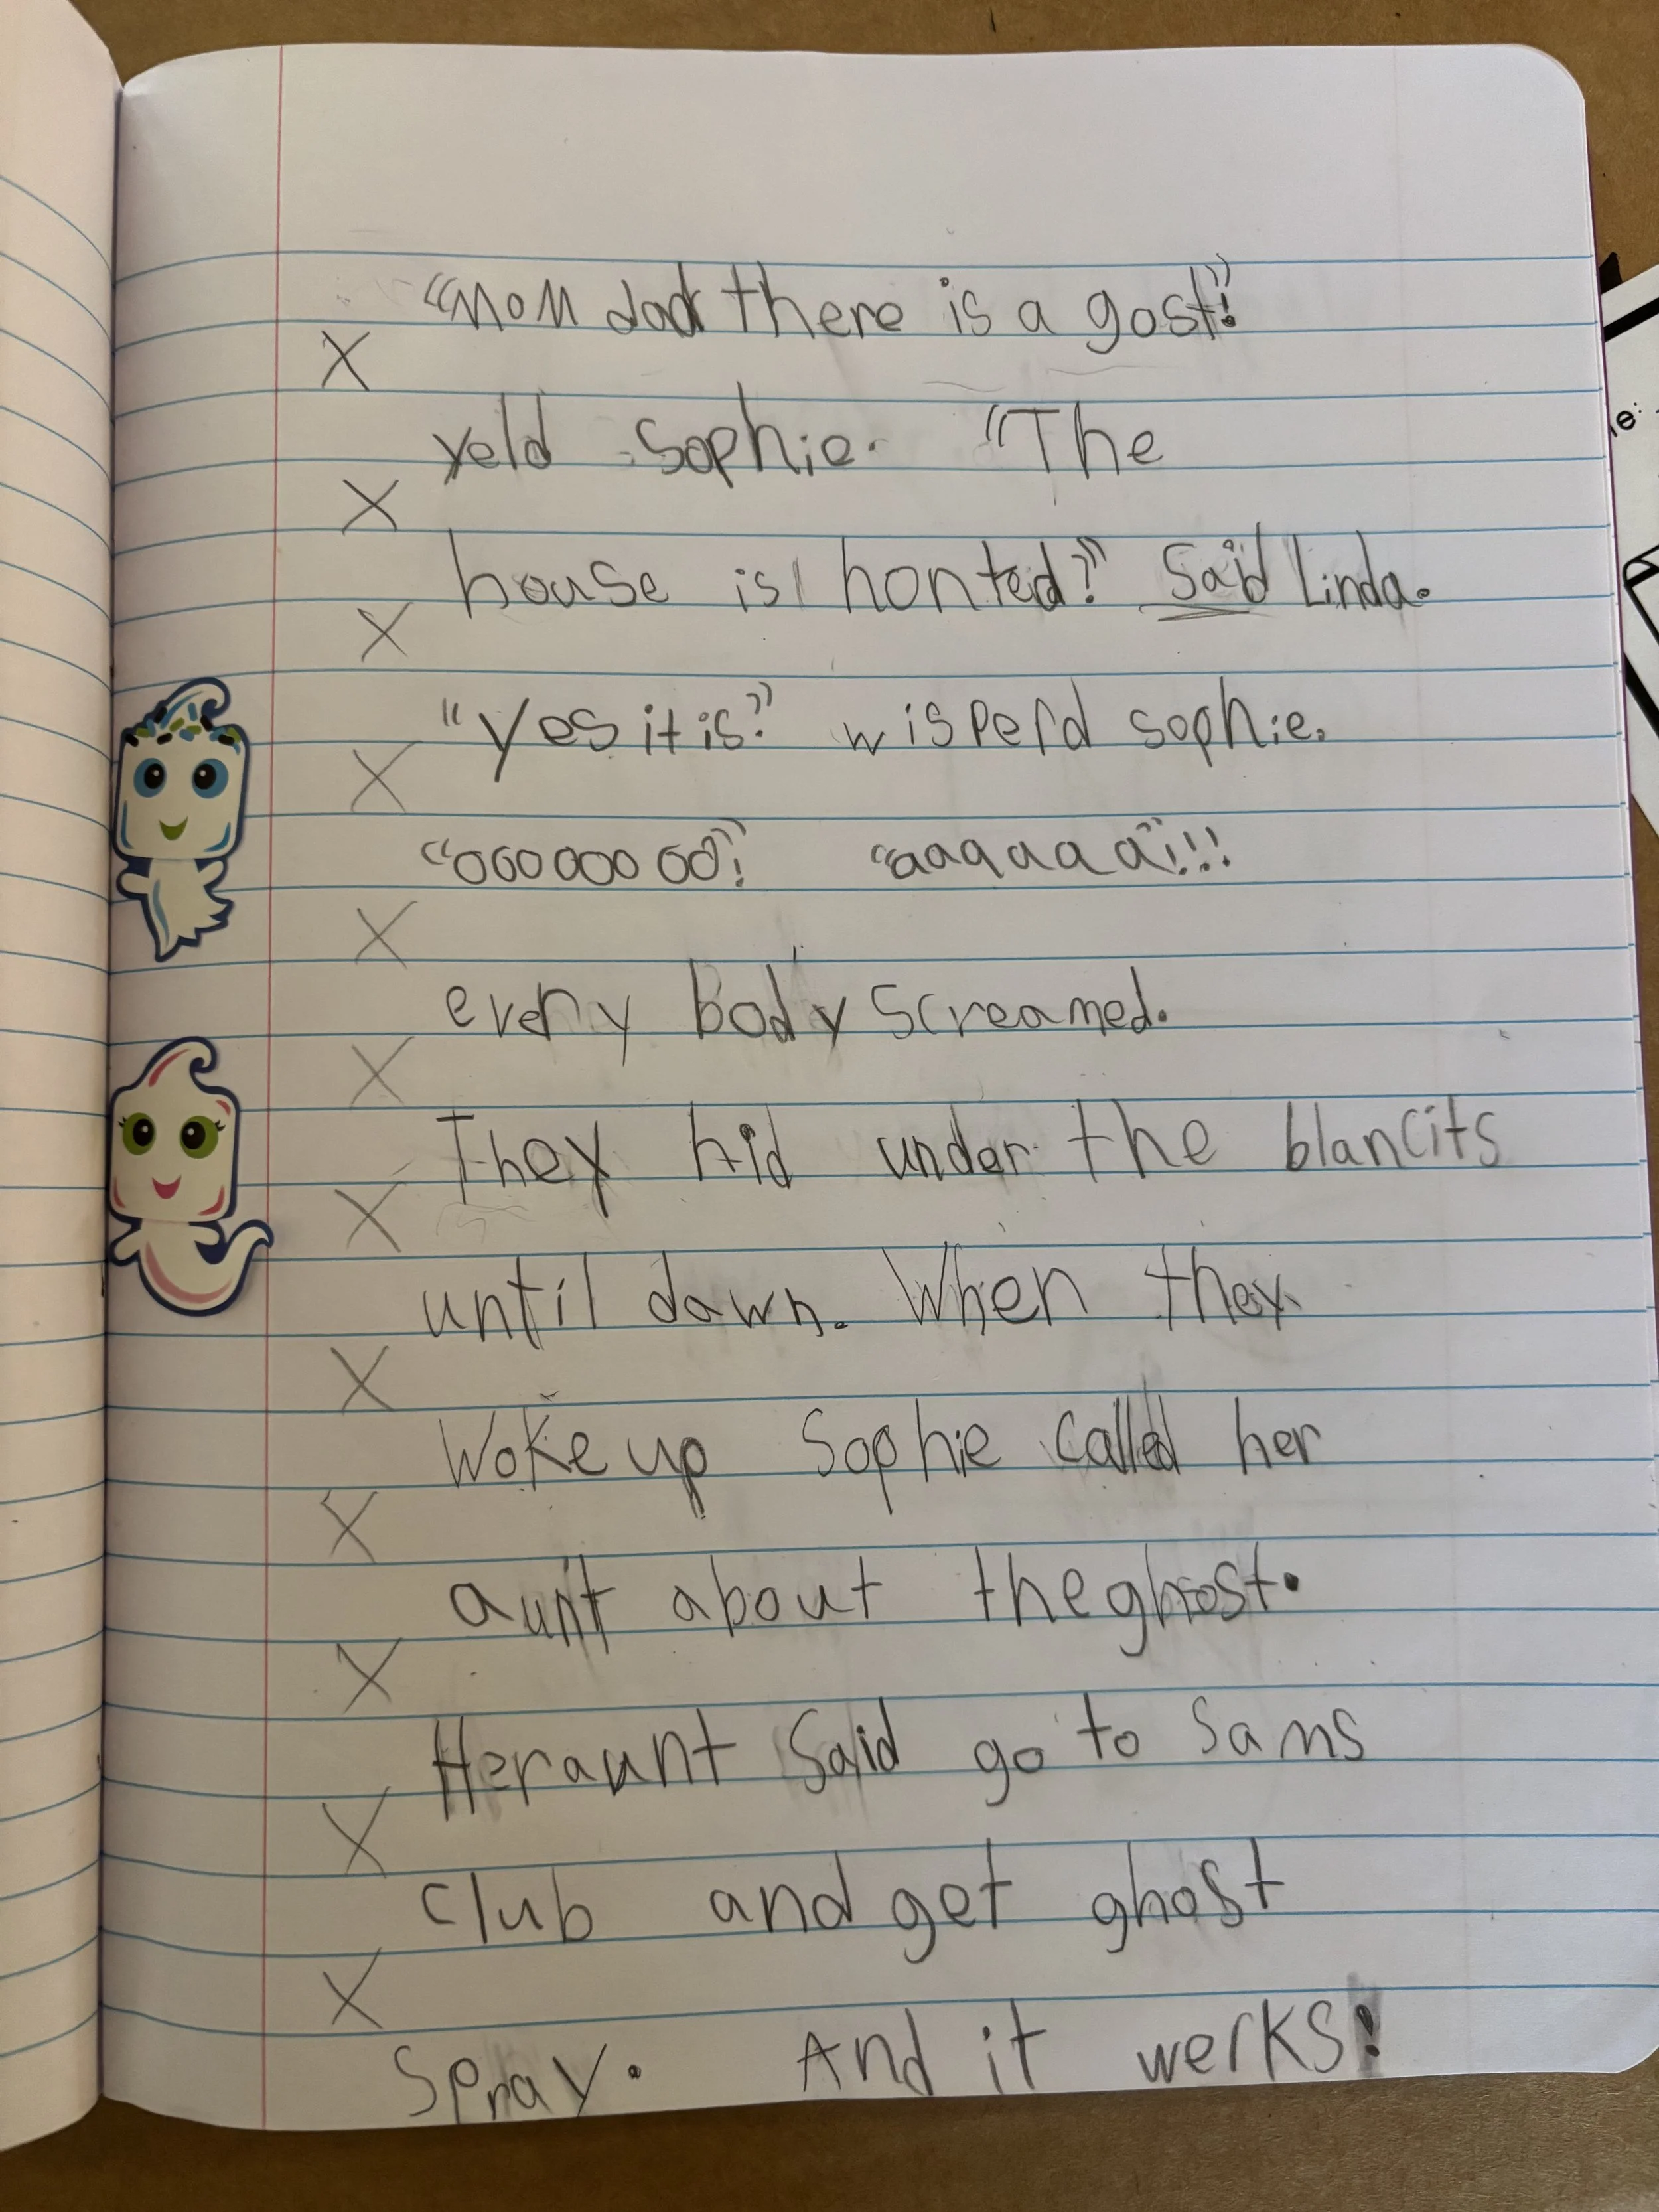 "Mom dad there is a gost"!
X
yeld Sophie. "The
X
house is honted?" Said Linda.
X
"Yes it is." wisperd sophie.
X
"oooooooo"! "aaaaaaa"!!!
X
every body screamed.
X
They hid under the blancits
X
until dawn. When they
X
Woke up Sophie called her
X
aunt about the ghost.
X
Her aunt Said go to Sams
X
club and get ghost
X
Spray. And it werks!
e: